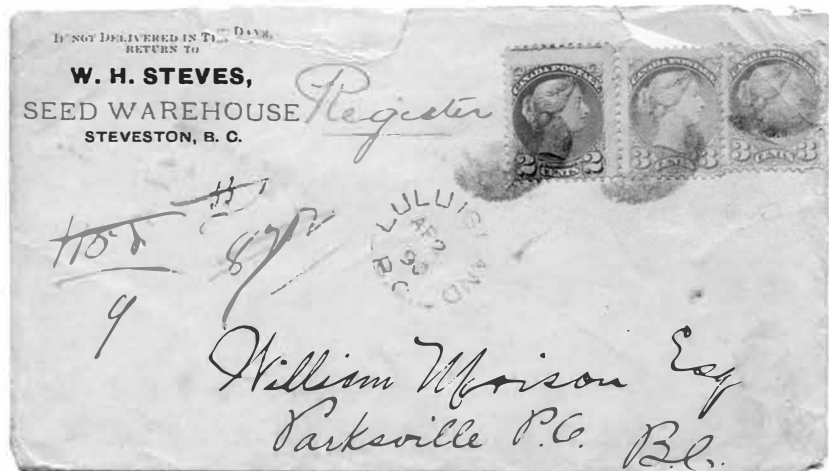 IF NOT DELIVERED IN TEN DAYS,
RETURN TO
W. H. STEVES,
SEED WAREHOUSE
STEVESTON, B. C.
Register
CANADA POSTAGE
2 CENTS 2
CANADA POSTAGE
3 CENTS 3
CANADA POSTAGE
3 CENTS 3
LULU ISLAND
B.C.
9
William Morison Esq
Parksville P.O.
B.C.